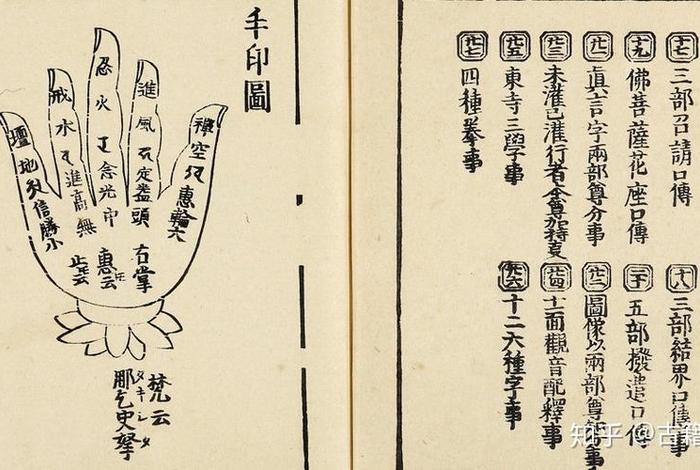 十七 三部召請口傳
十八 三部結界口傳事
十九 佛菩薩花座口傳
二十 五部撥遣口傳
廿一 真言字兩部尊分事
廿二 圖像以兩部尊
廿三 未灌已灌行者
廿四 十一面觀音配釋事
廿五 東寺三學事
廿六 十二六種字事
廿七 四種拳事
手印圖
禪空
惠輪大
進風
定蓋頭
右掌
忍火
念光巾
惠云
戒水
進高無
止云
壇地
信勝小
梵云
タキシタ
那乞史拏
知乎 @古籍